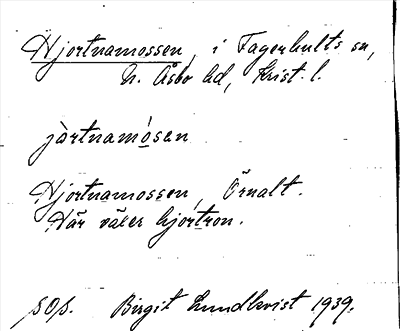 Hjortnamossen, i Fagerhults sn,
N. Åsbo hd, Krist. l.
jòrtnamósen
Hjortnamossen, Örnalt.
Här växer hjortron.
Birgit Lundkvist 1939.